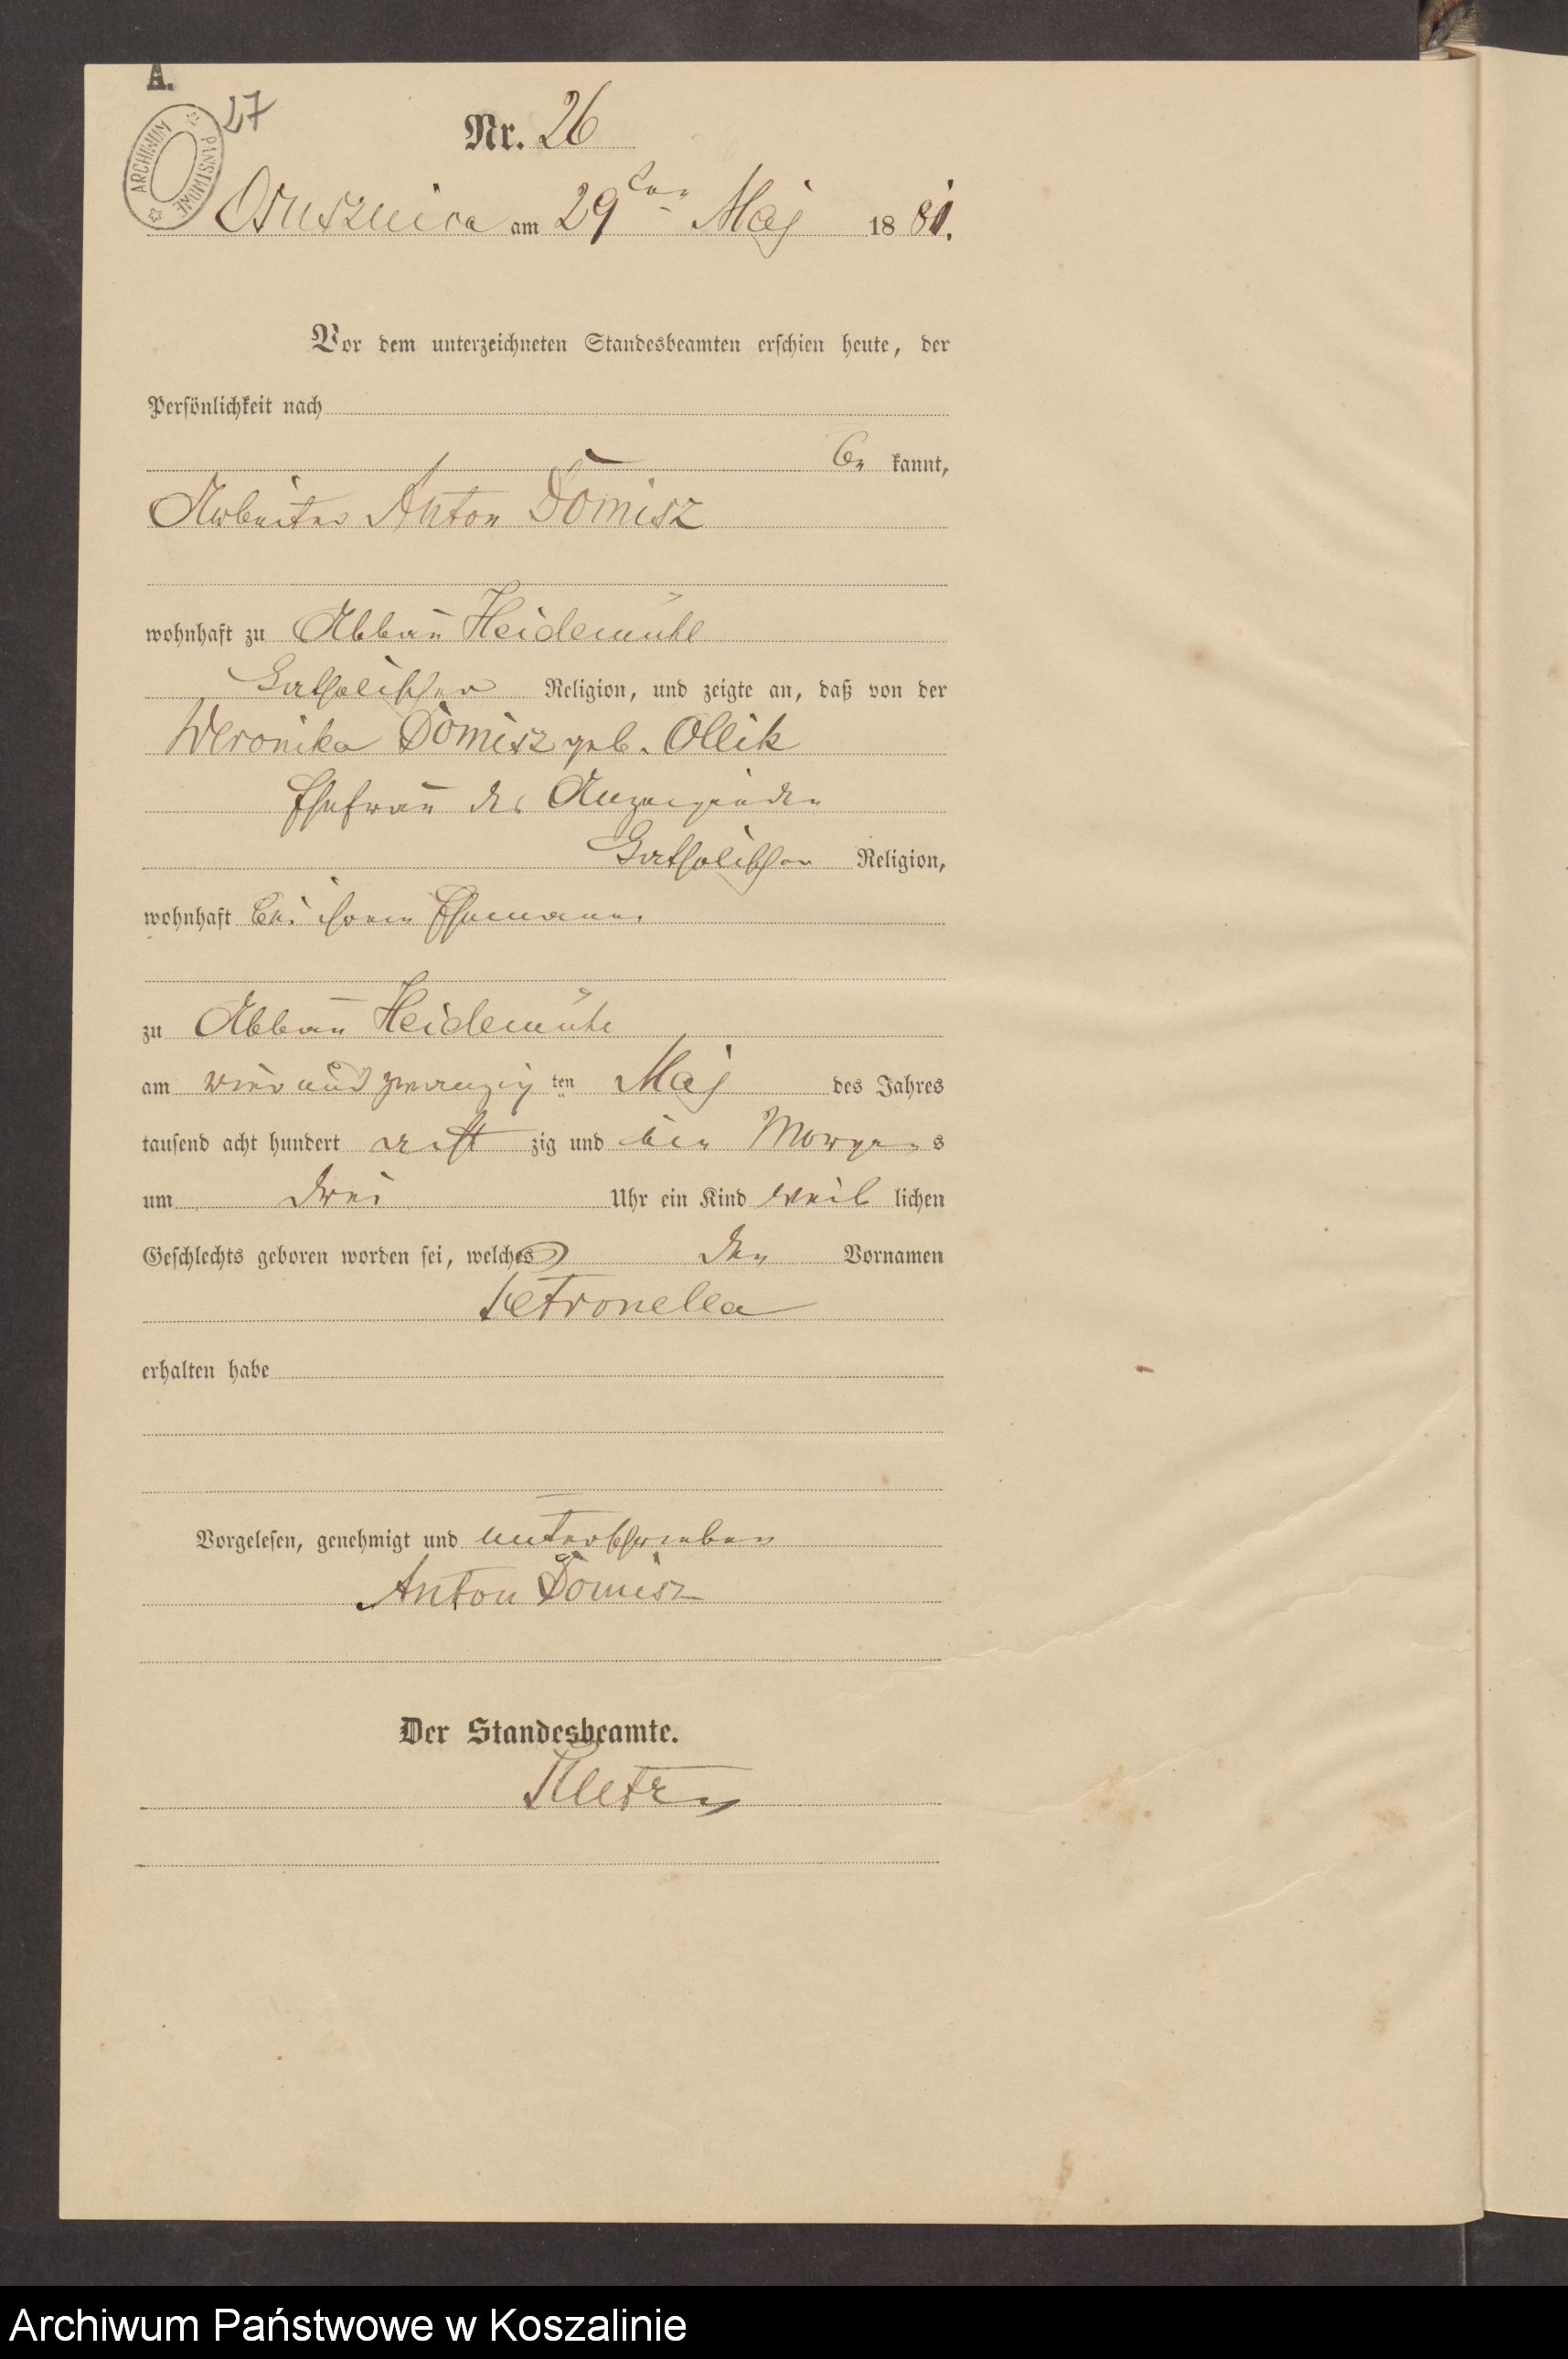 A.
27
ARCHIWUM PAŃSTWOWE
Nr. 26
Osusznica am 29ten Maj 1881.
Vor dem unterzeichneten Standesbeamten erschien heute, der
Persönlichkeit nach
be kannt,
Arbeiter Anton Domisz
wohnhaft zu Abbau Heidemühl
katholischer Religion, und zeigte an, daß von der
Weronika Domisz geb. Ollik
Ehefrau des Anzeigenden
katholischer Religion,
wohnhaft bei ihrem Ehemanne
zu Abbau Heidemühl
am vier und zwanzig ten Maj des Jahres
tausend acht hundert acht zig und ein Morgens
um drei Uhr ein Kind weib lichen
Geschlechts geboren worden sei, welches den Vornamen
Petronella
erhalten habe
Vorgelesen, genehmigt und unterschrieben
Anton Domisz
Der Standesbeamte.
Archiwum Państwowe w Koszalinie